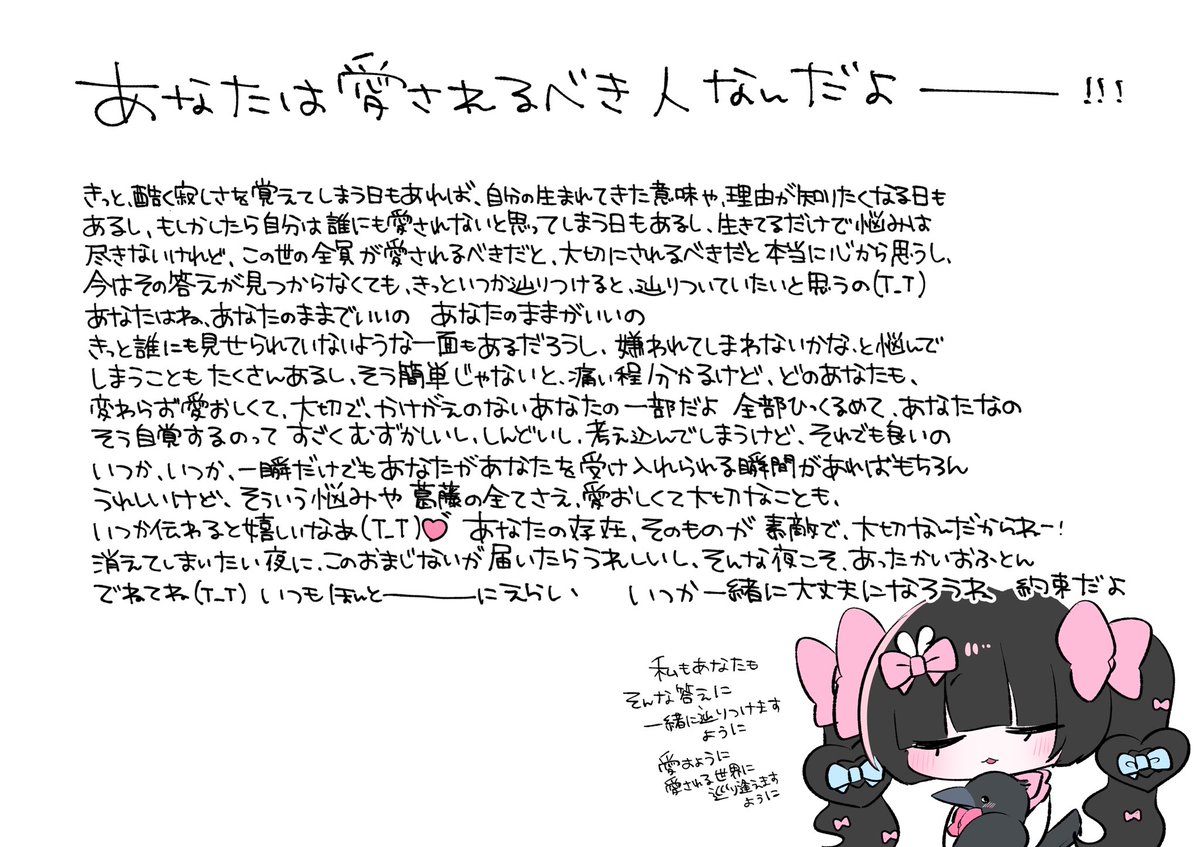 あなたは愛されるべき人なんだよ━━━!!!
きっと、酷く寂しさを覚えてしまう日もあれば、自分の生まれてきた意味や、理由が知りたくなる日も
あるし、もしかしたら自分は誰にも愛されないと思ってしまう日もあるし、生きてるだけで悩みは
尽きないけれど、この世の全員が愛されるべきだと、大切にされるべきだと本当に心から思うし、
今はその答えが見つからなくても、きっといつか辿りつけると、辿りついていたいと思うの(T_T)
あなたはね、あなたのままでいいの　あなたのままがいいの
きっと誰にも見せられていないような一面もあるだろうし、嫌われてしまわないかな、と悩んで
しまうこともたくさんあるし、そう簡単じゃないと、痛い程分かるけど、どのあなたも、
変わらず愛おしくて、大切で、かけがえのないあなたの一部だよ　全部ひっくるめて、あなたなの
そう自覚するのってすごくむずかしいし、しんどいし、考え込んでしまうけど、それでも良いの
いつか、いつか、一瞬だけでもあなたがあなたを受け入れられる瞬間があればもちろん
うれしいけど、そういう悩みや葛藤の全てさえ、愛おしくて大切なことも、
いつか伝わると嬉しいなあ(T_T)♥　あなたの存在、そのものが素敵で、大切なんだからねー!
消えてしまいたい夜に、このおまじないが届いたらうれしいし、そんな夜こそ、あったかいおふとん
でねてね(T_T)　いつもほんと━━━にえらい、　いつか一緒に大丈夫になろうね　約束だよ
私もあなたも
そんな答えに
一緒に辿りつけます
ように
愛すように
愛される世界に
巡り逢えます
ように